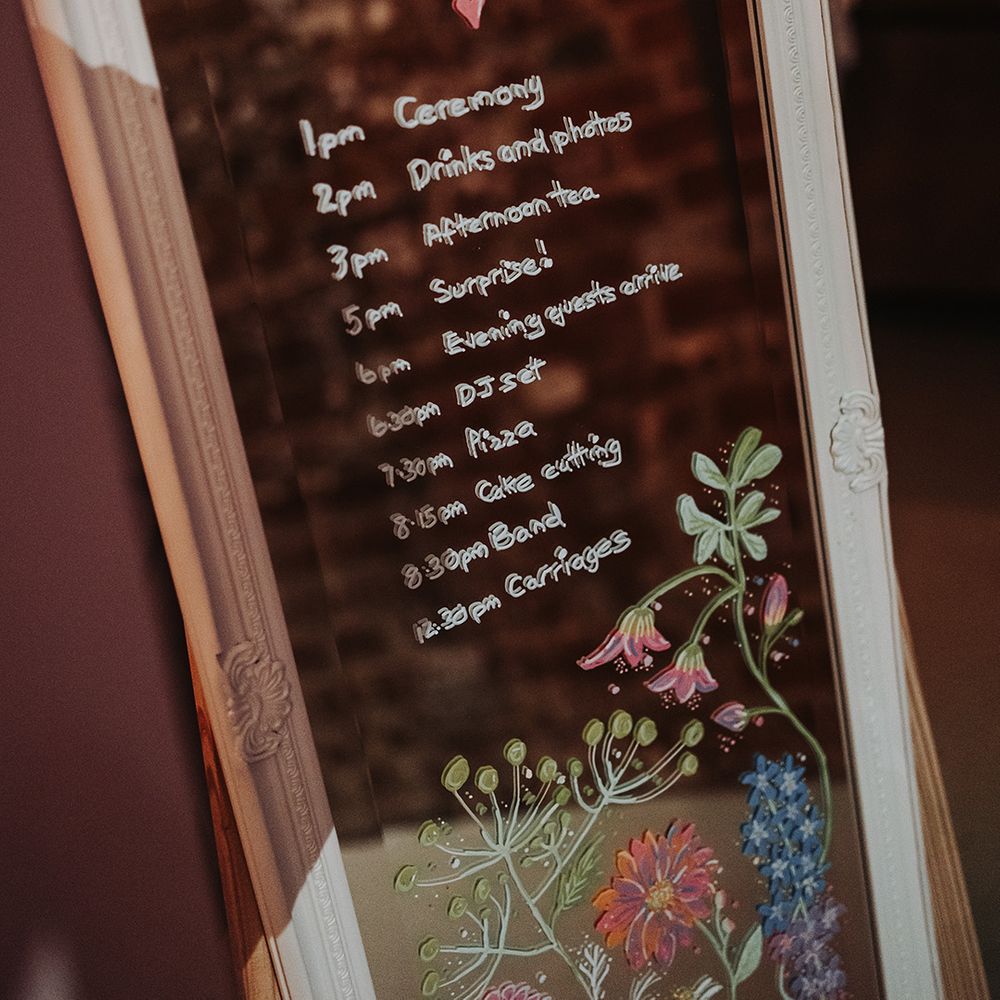 1pm Ceremony
2pm Drinks and photos
3pm Afternoon tea
5pm Surprise!
6pm Evening guests arrive
6:30pm DJ set
7:30pm Pizza
8:15pm Cake cutting
8:30pm Band
12:30pm Carriages